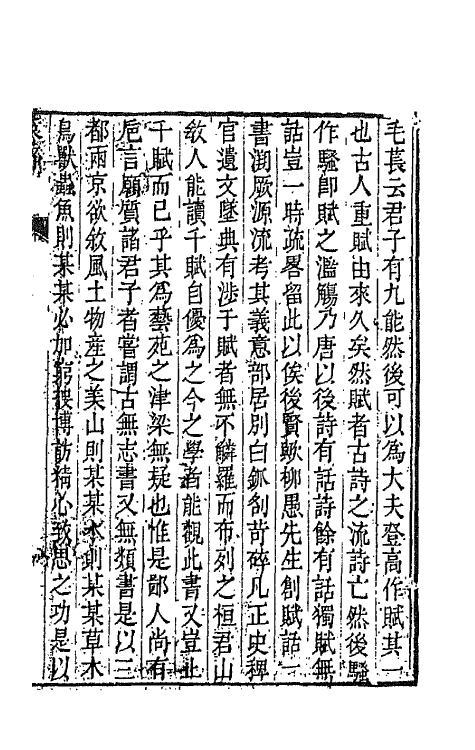 毛長云君子有九能然後可以為大夫登高作賦其一
也古人重賦由來久矣然賦者古詩之流詩亡然後騷
作騷卽賦之濫觴乃唐以後詩有話詩餘有話獨賦無
話豈一時疏畧留此以俟後賢歟柳愚先生創賦話一
書溯厥源流考其義意部居別白鈲刳苛碎凡正史稗
官遺文墜典有涉于賦者無不鱗羅而布列之桓君山
敎人能讀千賦自優為之今之學者能觀此書又豈止
千賦而已乎其為藝苑之津梁無疑也惟是鄙人尚有
巵言願質諸君子者嘗謂古無志書又無類書是以三
都兩京欲敘風土物產之美山則某某水則某某草木
鳥獸蟲魚則某某必加窮搜博訪精心致思之功是以